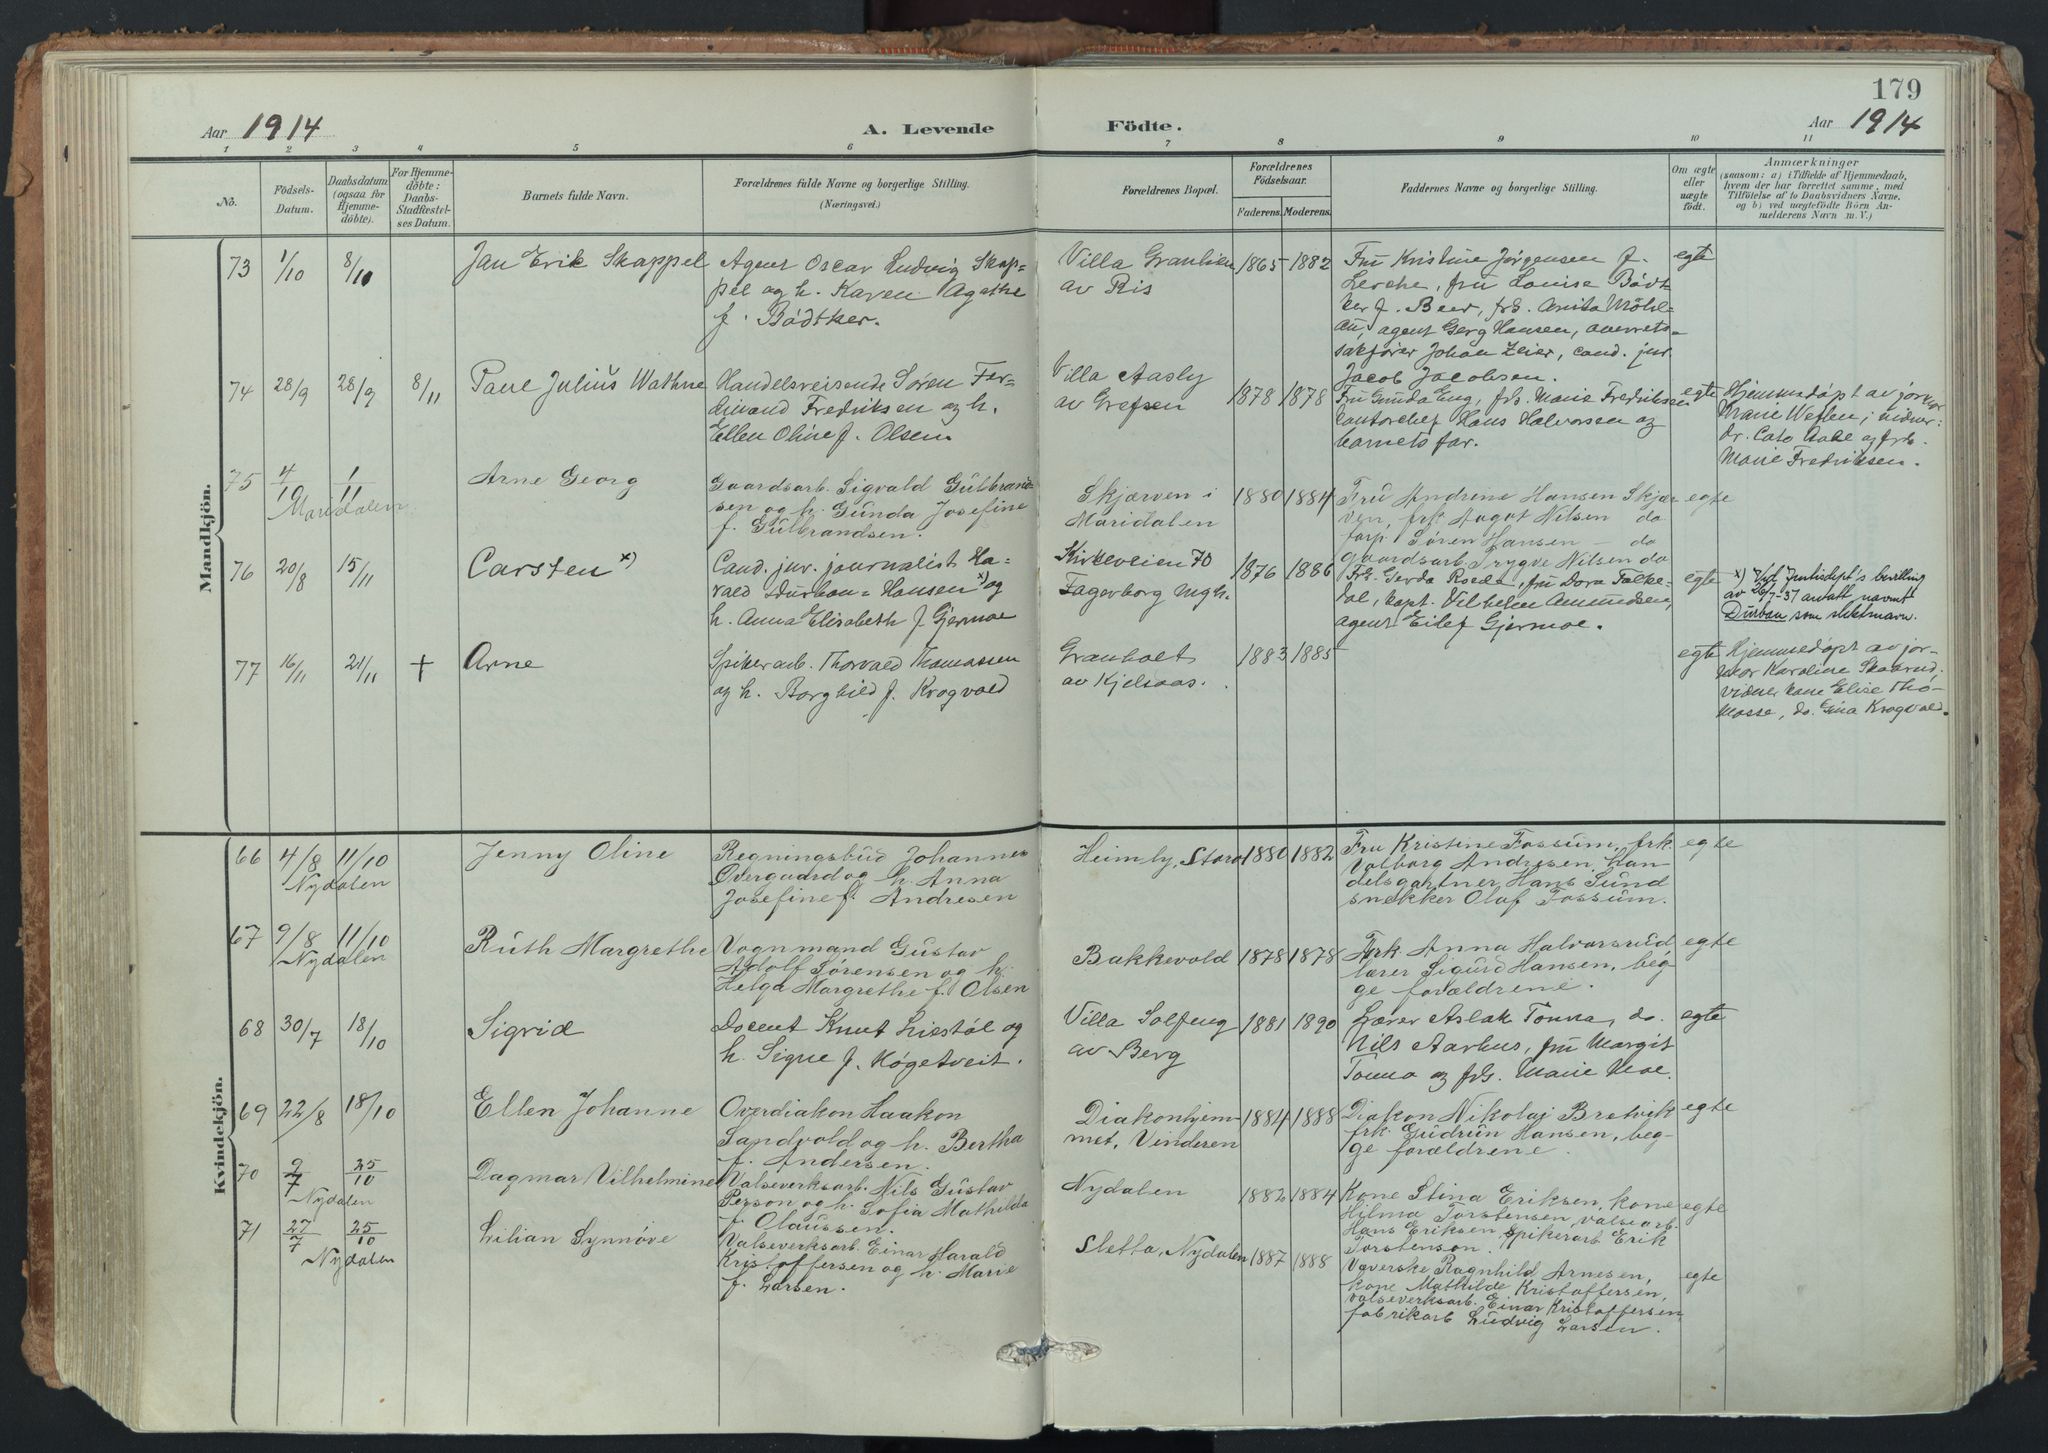 179
Aar 1914
A. Levende Födte.
Aar 1914
1 2 3 4 5 6 7 8 9 10 11
No.
Födsels-
Datum.
Daabsdatum
(ogsaa for
Hjemme-
döbte).
For Hjemme-
döbte:
Daabs-
Stadfæstel-
ses Datum.
Barnets fulde Navn.
Forældrenes fulde Navne og borgerlige Stilling.
(Næringsvei.)
Forældrenes Bopæl.
Forældrenes
Födselsaar.
Faderens. Moderens.
Faddernes Navne og borgerlige Stilling.
Om ægte
eller
uægte
födt.
Anmærkninger
(saasom: a) i Tilfælde af Hjemmedaab,
hvem der har forrettet samme, med
Tilföielse af to Daabsvidners Navne,
og b) ved uægtefödte Börn An-
melderens Navn m. V.)
Mandkjön.
73 1/10 8/10 Jan Erik Skappel
Agent Oscar Ludvig Skap-
pel og h. Karen Agathe
f. Bödtker.
Villa Granlien
av Ris
1865 1882
Fru Kristine Jørgensen f.
Lerche, fru Louise Bödt
ker f. Beer, frk. Anita Möhl-
au, agent Georg Hansen, overrets-
sakfører Johan Zeier, cand. jur.
Jacob Jacobsen.
egte
74 28/9 28/9 8/11 Paul Julius Wathne
Handelsreisende Søren Fer-
dinand Fredriksen og h.
Ellen Oline f. Olsen
Villa Aasly
av Grefsen
1878 1878
Fru Gunda Eng, frk. Marie Fredriksen
kontorchef Hans Halvorsen og
barnets far.
egte
Hjemmedøpt av jormor
Marie Weflen; vidner:
dr. Cato Aall og frk.
Marie Fredriksen.
75 4/10 1/11 Arne Georg
Maridalen
Gaardsarb. Sigvald Gulbrand-
sen og h. Gunda Josefine
f. Gulbrandsen.
Skjærven i
Maridalen
1880 1884
Fru Andrene Hansen Skjær
ven, frk Aagot Nilsen do
forp. Søren Hansen - do
gaardsarb. Trygve Nilsen do
egte
76 20/8 15/11 Carsten x)
Cand. jur. journalist Ha-
rald Durban=Hansen x) og
h. Anna Elisabeth f Gjermoe
Kirkeveien 70
Fagerborg mgh.
1876 1886
Frk. Gerda Roede, fru Dora Falke-
dal, kapt. Vilhelm Amundsen,
agent Eilef Gjermoe.
egte
x) Vgl Justisdept's bevilling
av 26/7-37 antatt navnet
Durban som slektsnavn.
77 16/11 21/11 + Arne
Spikerarb. Thorvald Thomassen
og h. Borghild f. Krogvold
Granholt
av Kjelsaas.
1883 1885
egte
Hjemmedøpt av jor-
mor Karoline Skaarud;
vidner kone Elise Tho-
masse, do. Gina Krogvold.
Kvindekjön.
66 4/8 11/10 Jenny Oline
Nydalen
Regningsbud Johannes
Overgaard og h. Anna
Josefine f. Andresen
Heimly, Storo
1880 1882
Fru Kristine Fossum, frk
Valborg Andresen, han-
delsgartner Hans Sund
snekker Olaf Fossum.
egte
67 9/8 11/10 Ruth Margrethe
Nydalen
Vognmand Gustav
Adolf Sørensen og h.
Helga Margrethe f. Olsen
Bakkevold
1878 1878
Frk Anna Halvorsrud
lærer Sigurd Hansen, beg
ge forældrene.
egte
68 30/7 18/10 Sigrid
Docent Knut Liestøl og
h. Signe f. Høgetveit.
Villa Solfeng
av Berg
1881 1890
Lærer Aslak Tonna, do.
Nils Aarhus, fru Margit
Tonna og frk. Marie Moe.
egte
69 22/8 18/10 Ellen Johanne
Overdiakon Haakon
Sandvold og h. Bertha
f. Andersen.
Diakonhjem-
met, Vinderen
1884 1888
Diakon Nikolai Bretvik
frk. Gudrun Hansen, beg-
ge forældrene.
egte
70 9/7 25/10 Dagmar Vilhelmine
Nydalen
Valseverksarb. Nils Gustav
Person og h. Sofia Mathilda
f. Olaussen.
Nydalen
1882 1884
Kone Stina Eriksen, kone
Hilma Torstensen, valsearb.
Hans Eriksen, spikerarb Erik
Torstenson.
egte
71 27/7 25/10 Lilian Synnöve
Nydalen
Valseverksarb. Einar Harald
Kristoffersen og h. Marie
f. Larsen.
Sletta, Nydalen
1887 1888
Væverske Ragnhild Arnesen,
kone Mathilde Kristoffersen,
valseverksarb. Einar Kristoffersen
fabrikarb Ludvig Larsen.
egte